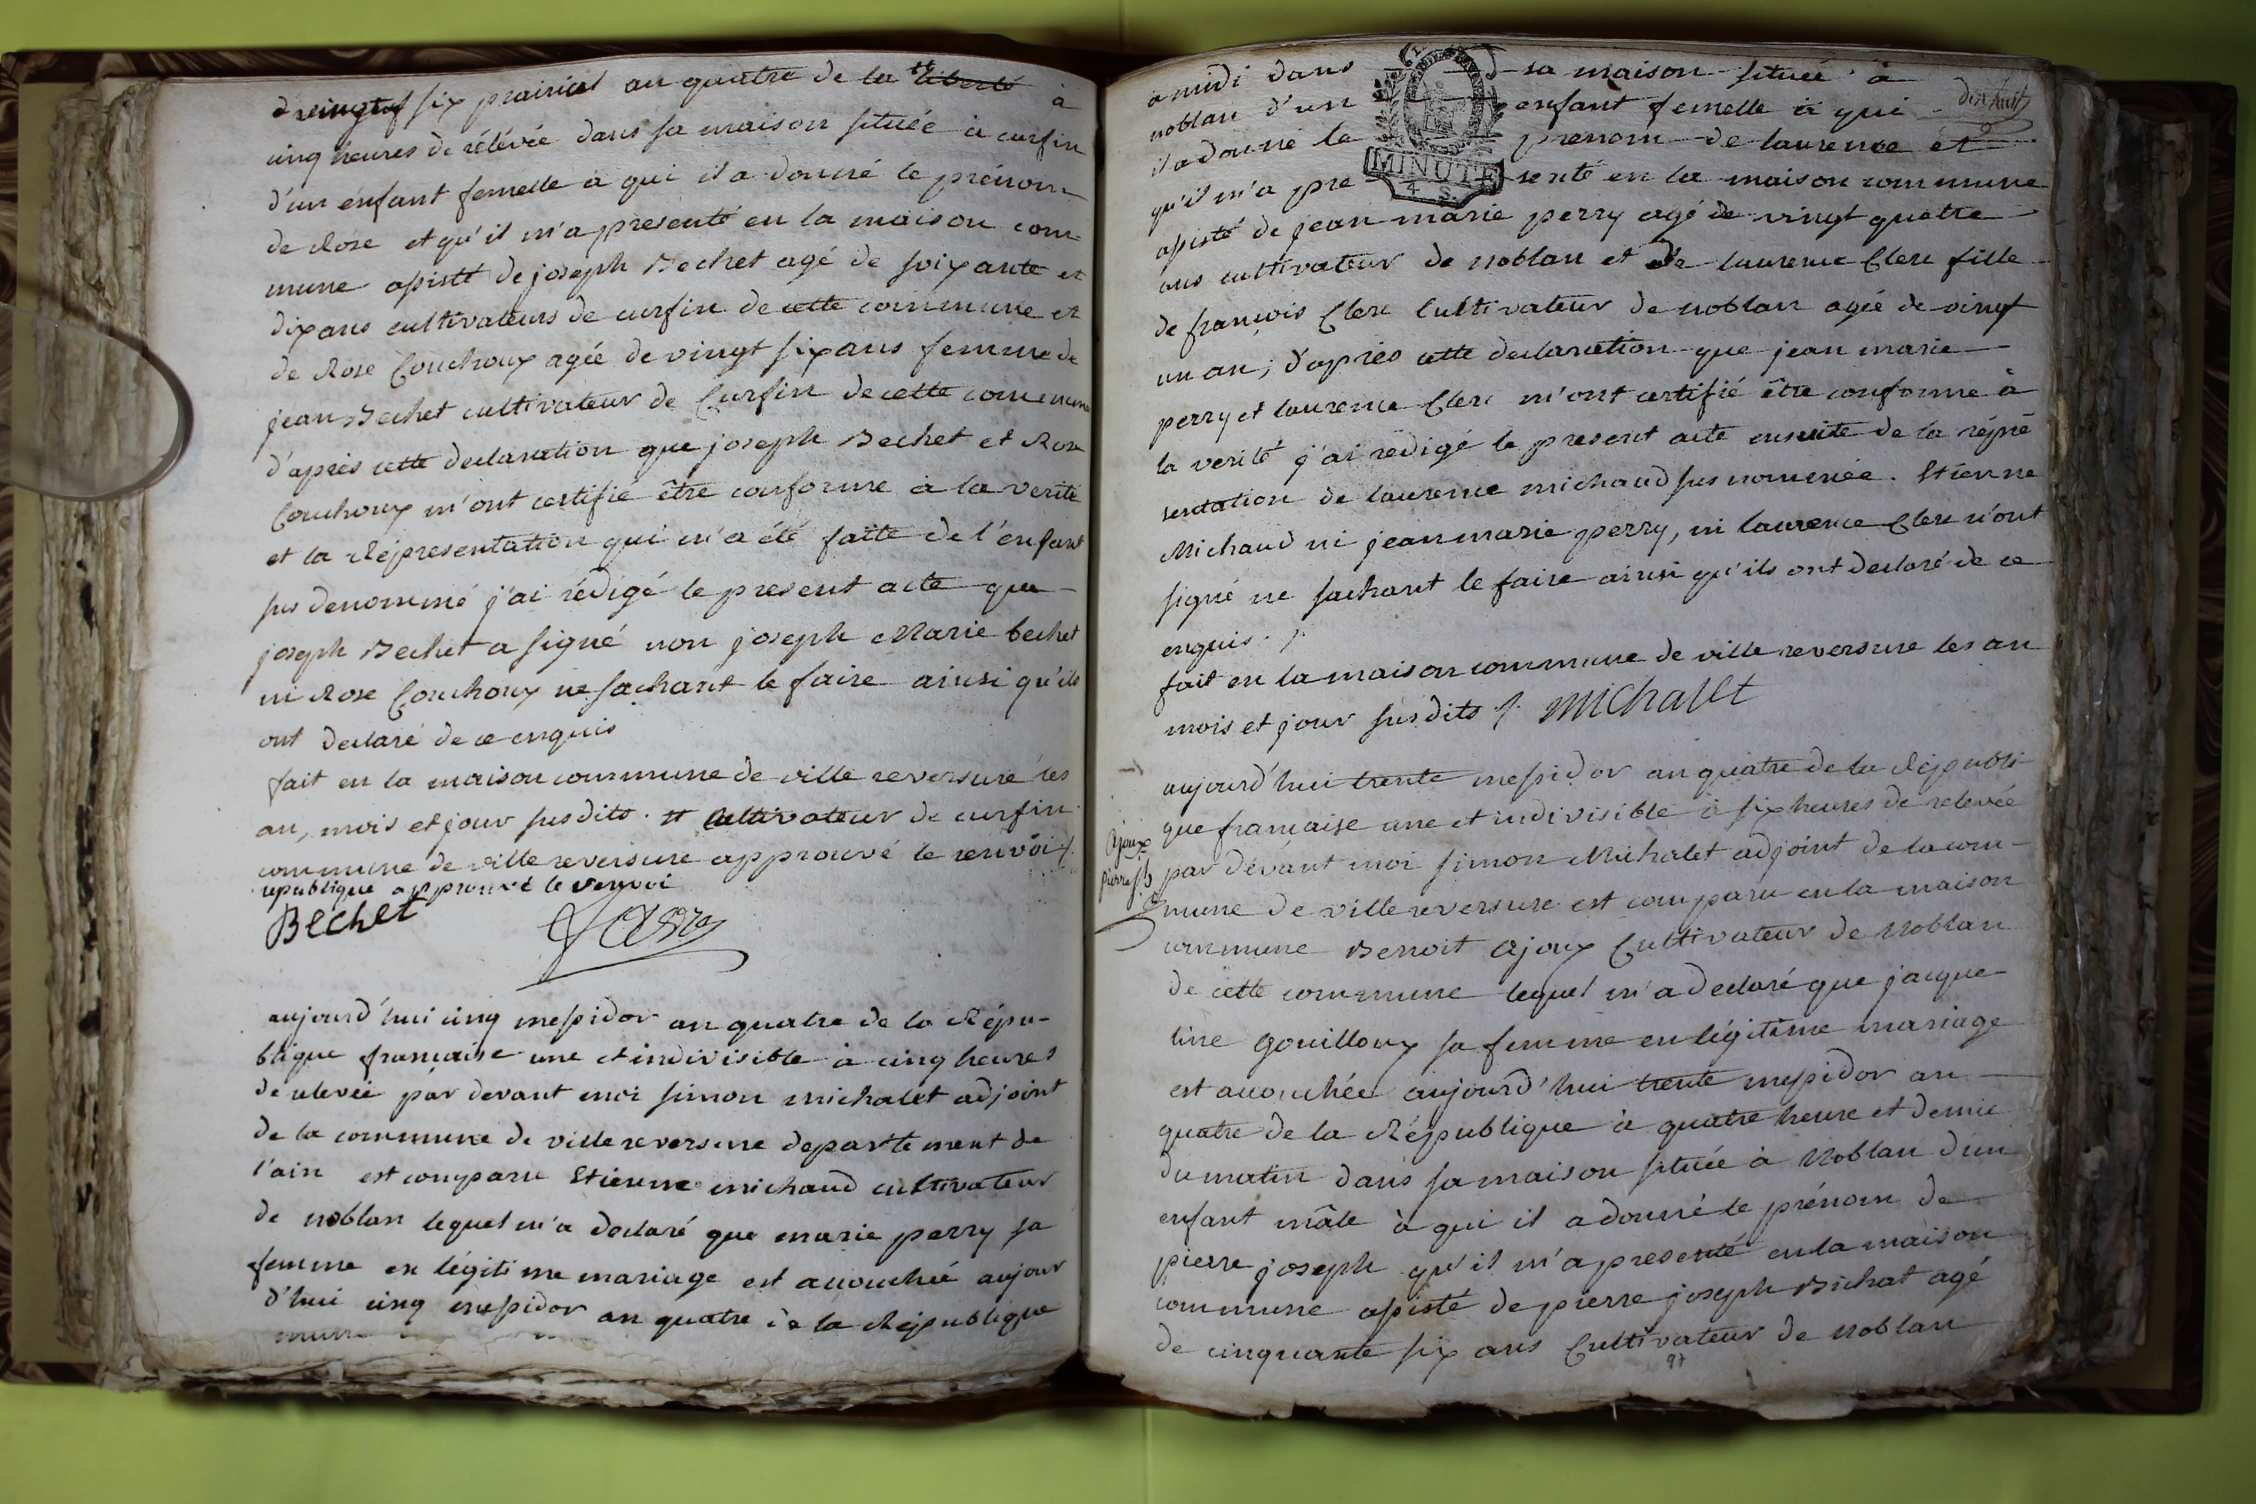 vingt six prairial an quatre de la liberté à
cinq heures de rélévée dans sa maison située à curfin
d'un énfant femelle à qui il a donné le prénom
de Rose et qu'il m'a présenté en la maison com-
mune assisté de joseph Bechet agé de soixante et
dix ans cultivateurs de curfin de cette commune et
de Rose Couchoux agée de vingt six ans femme de
jean Bechet cultivateur de Curfin de cette commune
d'après cette declaration que joseph Bechet et Rose
Couchoux m'ont certifié être conforme à la verité
et la Répresentation qui m'a été faite de l'enfant
sus denommé j'ai rédigé le present acte que
joseph Bechet a signé non joseph Marie bechet
ni Rose Couchoux ne sachant le faire ainsi qu'ils
ont declaré de ce enquis
fait en la maison commune de ville reversure les
an, mois et jour susdits. # Cultivateur de curfin
commune de ville reversure approuvé le renvoi ./.
republique approuvé le renvoi
Bechet
aujourd'hui cinq messidor an quatre de la Répu-
blique française une et indivisible à cinq heures
de relevée par devant moi simon michalet adjoint
de la commune de ville reversure departement de
l'ain est comparu Etienne michaud cultivateur
de noblan lequel m'a declaré que marie perry sa
femme en légitime mariage est accouchée aujour
d'hui cinq messidor an quatre de la République
a midi dans sa maison située à
noblan d'un enfant femelle à qui
dix huit
il a donné le prenom de laurence et
MINUTE
4 S.
qu'il m'a pre senté en la maison commune
assisté de jean marie perry agé de vingt quatre
ans cultivateur de noblan et de laurence Clerc fille
de françois Clerc Cultivateur de noblan agée de vingt
un an; d'après cette declaration que jean marie
perry et laurence Clerc m'ont certifié être conforme à
la verité j'ai rédigé le present acte ensuite de la répré
sentation de laurence michaud sus nommée. Etienne
Michaud ni jean marie perry, ni laurence Clerc n'ont
signé ne sachant le faire ainsi qu'ils ont declaré de ce
enquis ./.
fait en la maison commune de ville reversure les an
mois et jour susdits ./. Michallet
aujourd'hui trente messidor an quatre de la Républi
que française une et indivisible à six heures de relevée
Ajoux
pierre jh
par dévant moi simon Michalet adjoint de la com-
mune de ville reversure est comparu en la maison
commune Benoit Ajoux Cultivateur de Noblan
de cette commune lequel m'a declaré que jacque
line Gouilloux sa femme en légitime mariage
est accouchée aujourd'hui trente messidor an
quatre de la République à quatre heure et demie
du matin dans sa maison située à Noblan d'un
enfant mâle à qui il a donné le prénom de
pierre joseph qu'il m'a presenté en la maison
commune assisté de pierre joseph Bichat agé
de cinquante six ans Cultivateur de noblan
97